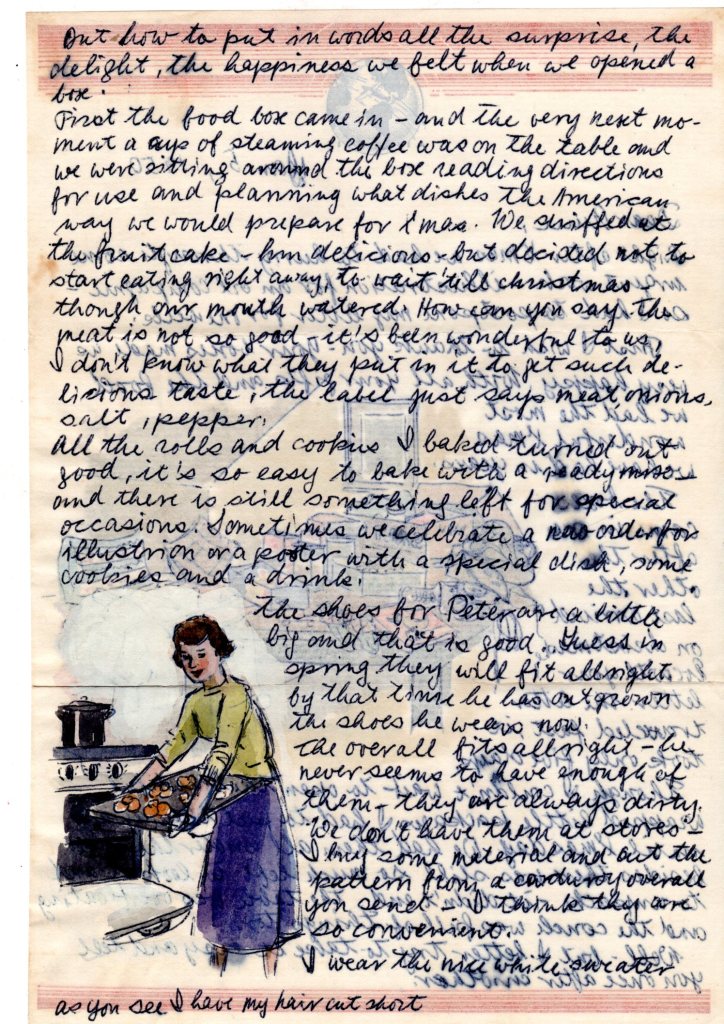 But how to put in words all the surprise, the
delight, the happiness we felt when we opened a
box.
First the food box came in – and the very next mo-
ment a cup of steaming coffee was on the table and
we were sitting around the box reading directions
for use and planning what dishes the American
way we would prepare for X'mas. We sniffed at
the fruitcake – hm delicious – but decided not to
start eating right away, to wait 'till christmas
though our mouth watered. How can you say the
meat is not so good, it's been wonderful to us,
I don't know what they put in it to get such de-
licious taste, the label just says meat onions,
salt, pepper.
All the rolls and cookies I baked turned out
good, it's so easy to bake with a ready mix –
and there is still something left for special
occasions. Sometimes we celebrate a new order for
illustrion or a poster with a special dish, some
cookies and a drink.
The shoes for Peter are a little
big and that is good. Guess in
spring they will fit allright
by that time he has outgrown
the shoes he wears now.
The overall fits allright – he
never seems to have enough of
them – they are always dirty.
We don't have them at stores –
I buy some material and cut the
pattern from a corduroy overall
you sent – I think they are
so convenient.
I wear the nice white sweater
as you see I have my hair cut short